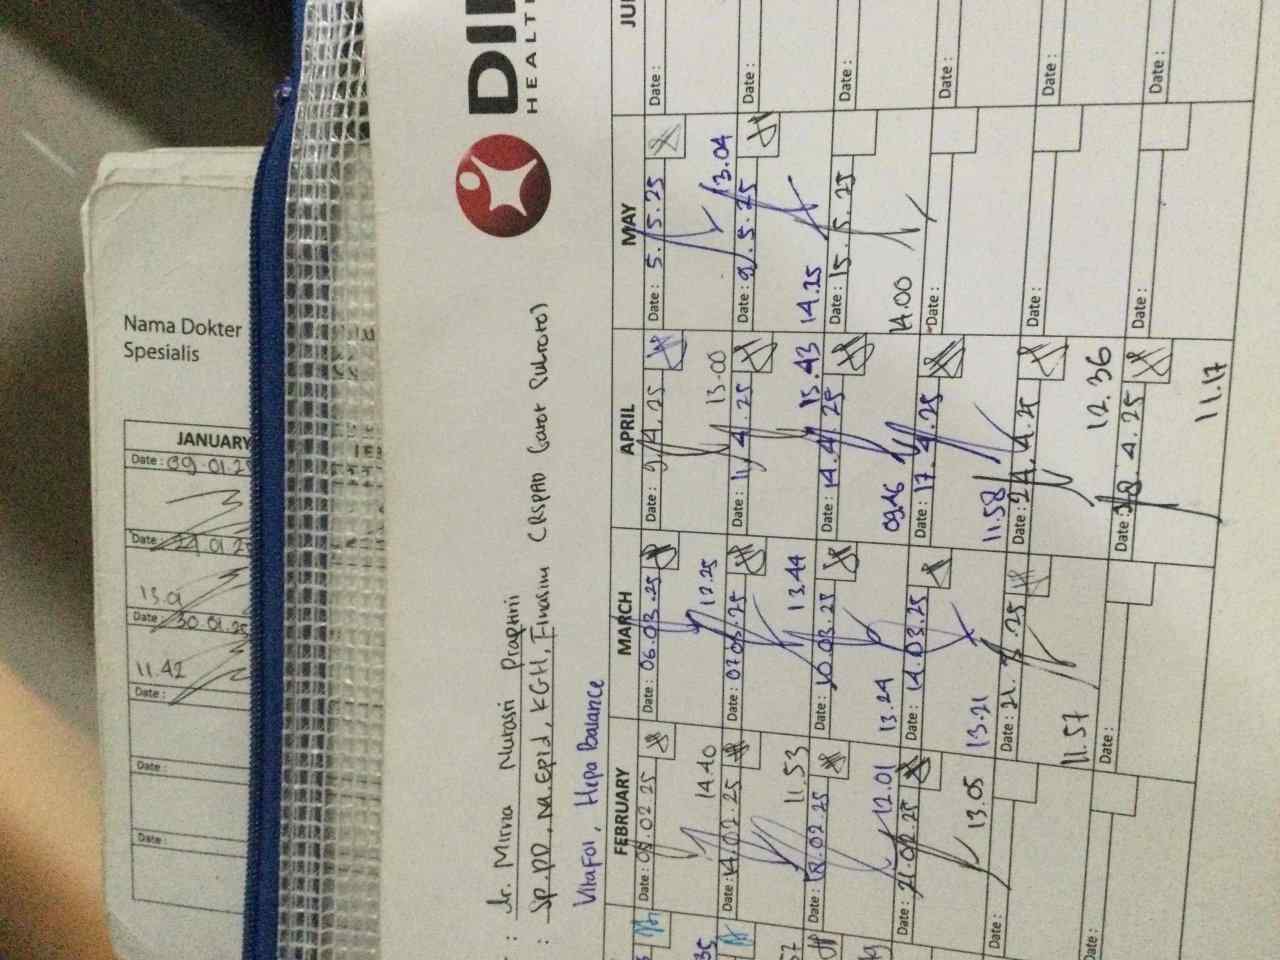 Nama Dokter
Spesialis
JANUARY
Date : 09.01.25
Date : 24.01.25
13.01
Date : 30.01.25
11.42
Date :
Date :
Date :
HEALT
: dr. Mirna Nurasri Praptini
: Sp.PD, M.Epid, KGH, Finasim (RSPAD Gatot Subroto)
VitaFol, Hepa Balance
FEBRUARY
Date :
14.10
Date : 14.02.25
11.53
Date : 18.02.25
12.01
Date : 21.02.25
13.05
Date :
Date :
MARCH
Date : 06.03.25
12.25
Date : 07.03.25
13.44
Date : 10.03.25
13.24
Date : 14.03.25
13.21
Date : 21.3.25
11.57
Date :
APRIL
Date : 9.4.25
13.00
Date : 11.4.25
13.43
Date : 14.4.25
09.16
Date : 17.4.25
11.58
Date : 24.4.25
12.36
Date : 28.4.25
11.17
MAY
Date : 5.5.25
13.04
Date : 9.5.25
14.25
Date : 15.5.25
14.00
Date :
Date :
Date :
Date :
Date :
Date :
Date :
Date :
Date :